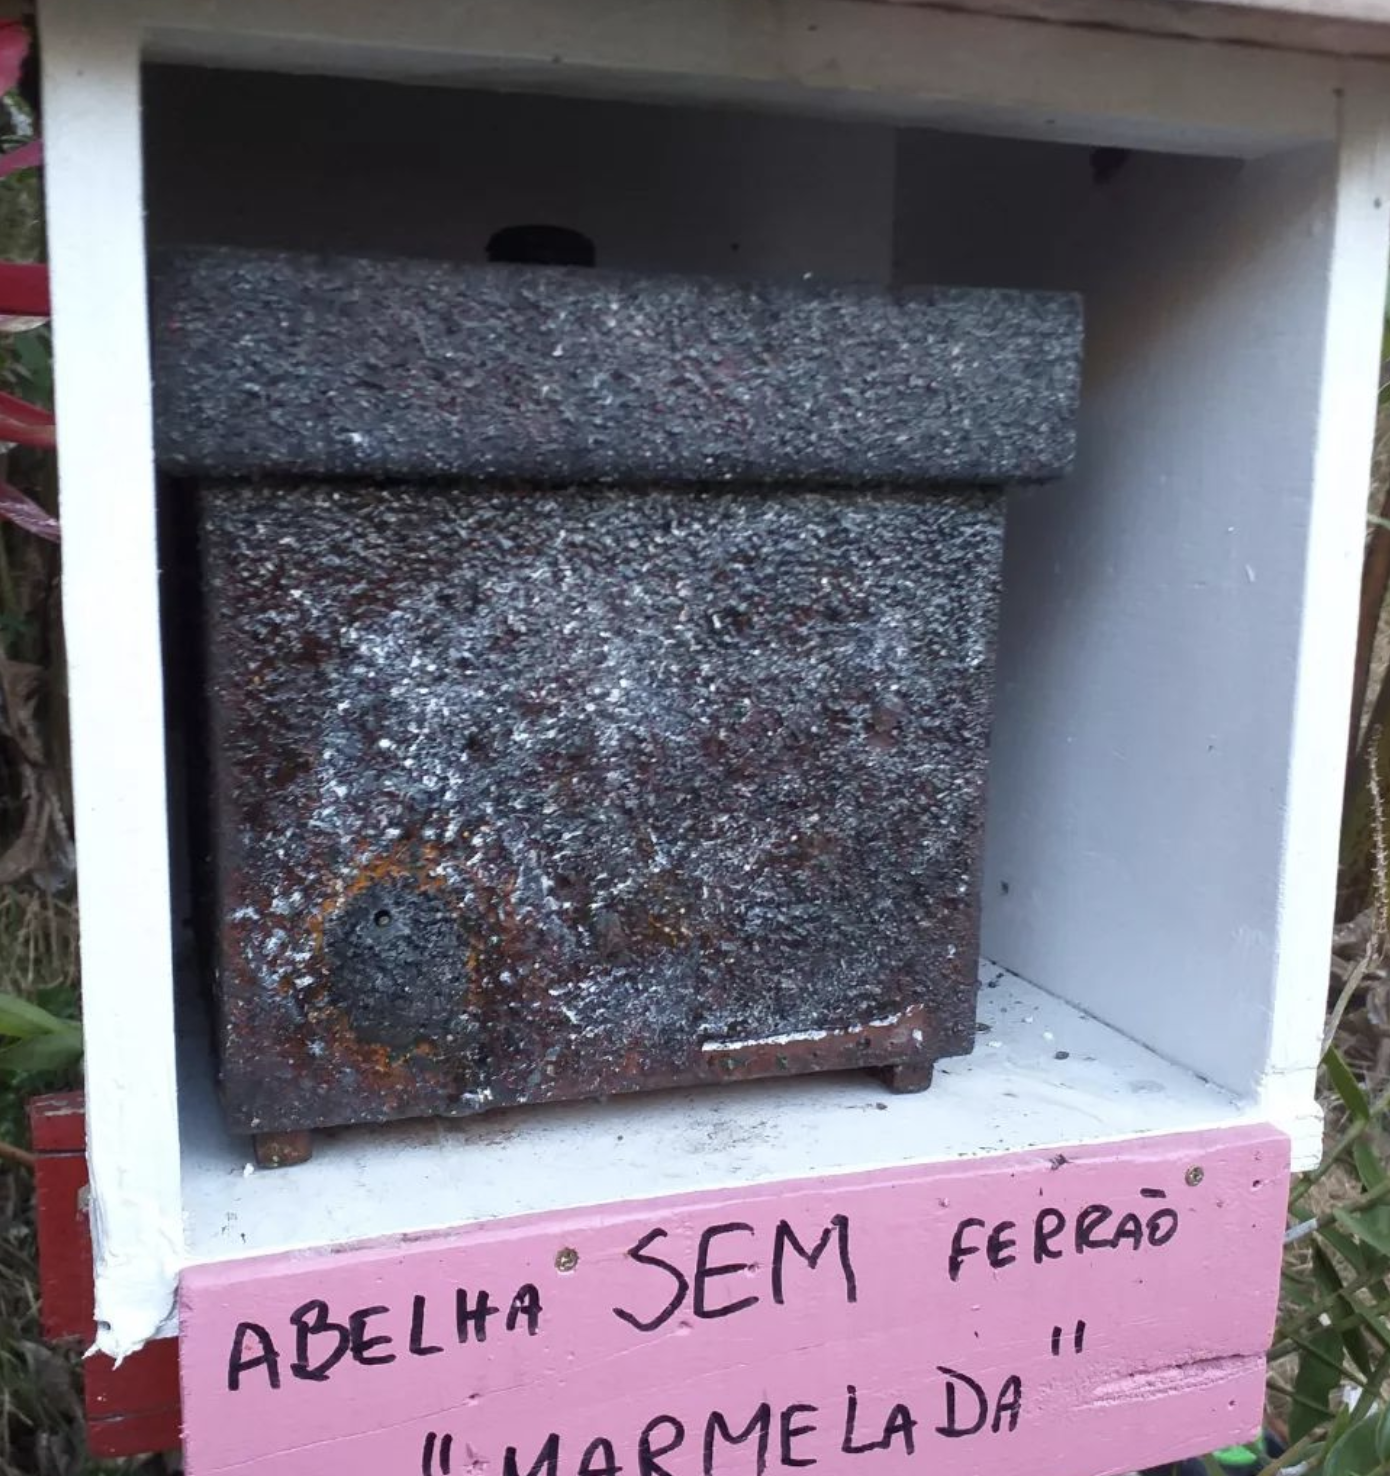 ABELHA SEM FERRÃO
"MARMELADA"